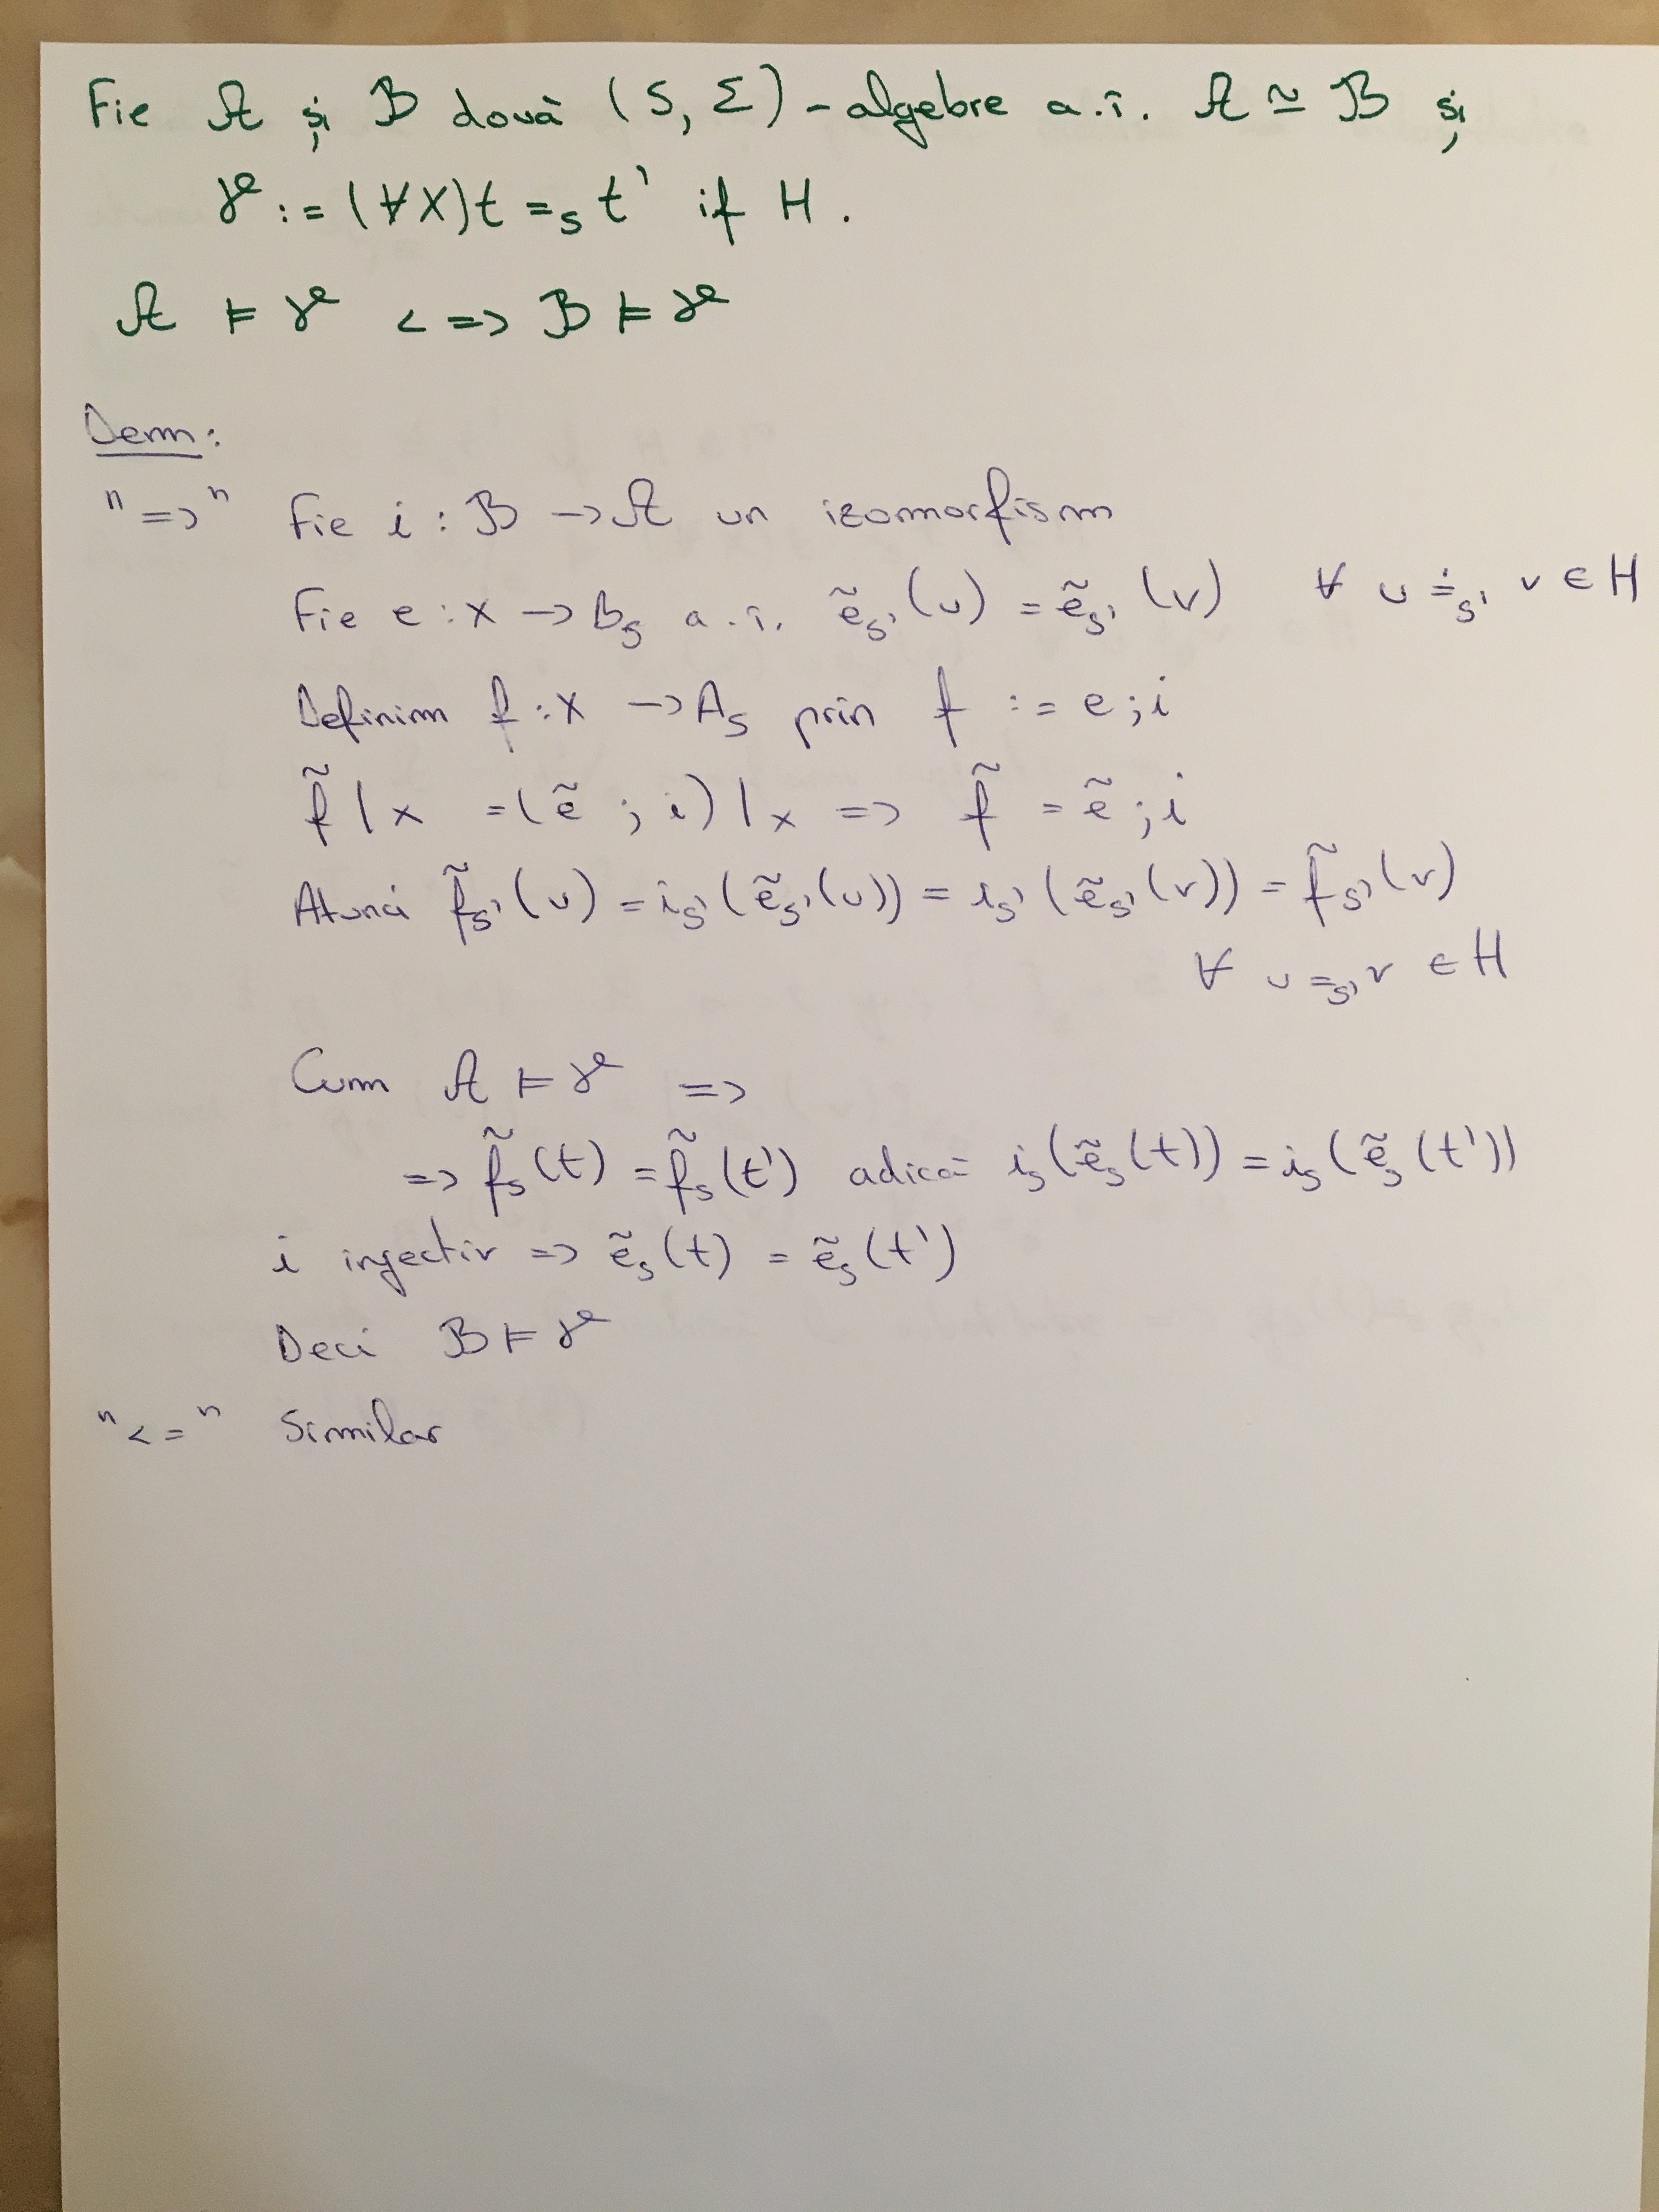 Fie 𝒜 și ℬ două (S, Σ) - algebre a.î. 𝒜 ≃ ℬ și
γ := (∀X) t =ₛ t' if H.
𝒜 ⊨ γ <=> ℬ ⊨ γ
Dem:
"=>" Fie i : ℬ -> 𝒜 un izomorfism
Fie e : X -> Bₛ a.î. ẽₛ'(u) = ẽₛ'(v) ∀ u ≐ₛ' v ∈ H
Definim f : X -> Aₛ prin f := e;i
f̃|x = (ẽ ; i)|x => f̃ = ẽ ; i
Atunci f̃ₛ'(u) = iₛ'(ẽₛ'(u)) = iₛ'(ẽₛ'(v)) = f̃ₛ'(v)
∀ u =ₛ' v ∈ H
Cum 𝒜 ⊨ γ =>
=> f̃ₛ(t) = f̃ₛ(t') adică iₛ(ẽₛ(t)) = iₛ(ẽₛ(t'))
i injectiv => ẽₛ(t) = ẽₛ(t')
Deci ℬ ⊨ γ
"<=" Similar